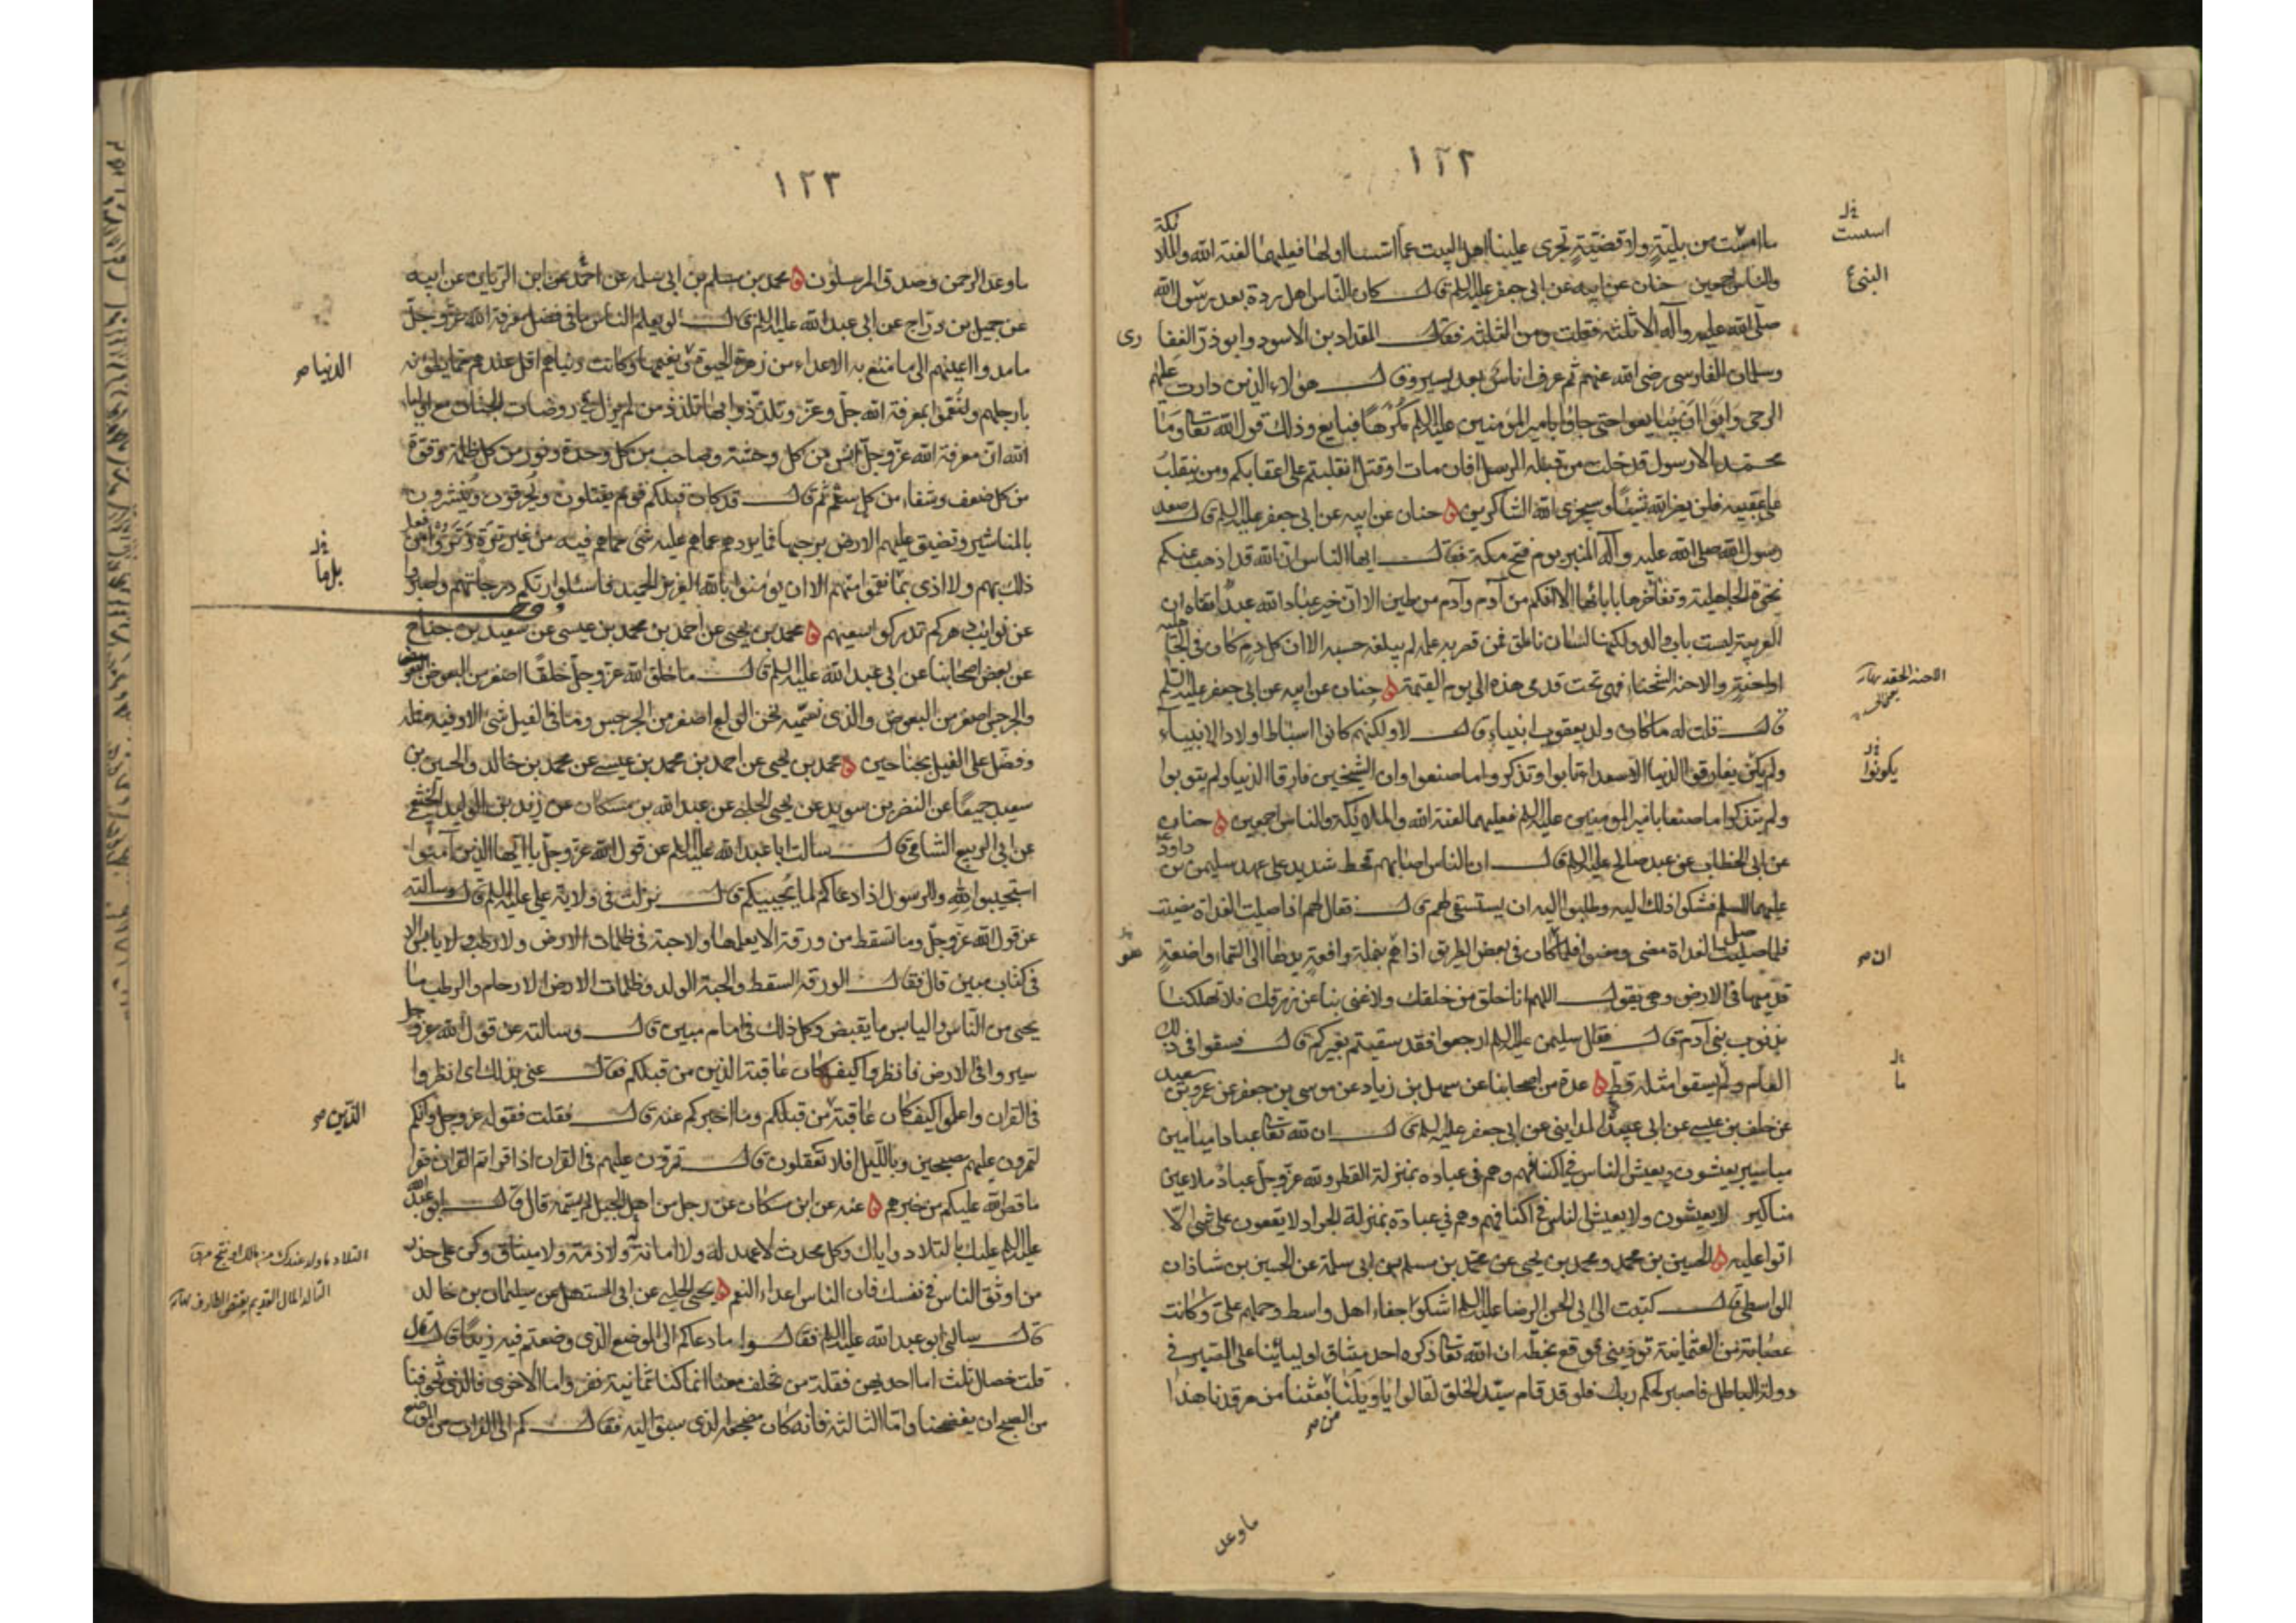 ١٢٢
ما اسست من بلية ولا قضية تجرى علينا اهل البيت عما اسسا اولها فعليهما لعنة الله والملا ئكة
اسست
والناس اجمعين حنان عن ابيه عن ابى جعفر عليه السلم قال كان الناس اهل ردة بعد رسول الله
النبى ع
صلى الله عليه وآله الا ثلثة فقلت ومن الثلثة فقال المقداد بن الاسود وابو ذر الغفا رى
وسلمان الفارسى رضى الله عنهم ثم عرف اناس بعد يسير وقال هؤلاء الذين دارت عليهم
الرحى وابوا ان يبايعوا حتى جاؤا بامير المؤمنين عليه السلم مكرها فبايع وذلك قول الله تعالى وما
محمد الا رسول قد خلت من قبله الرسل افان مات او قتل انقلبتم على اعقابكم ومن ينقلب
على عقبيه فلن يضر الله شيئا وسيجزى الله الشاكرين حنان عن ابيه عن ابى جعفر عليه السلم قال صعد
رسول الله صلى الله عليه وآله المنبر يوم فتح مكة فقال ايها الناس ان الله قد اذهب عنكم
نخوة الجاهلية وتفاخرها بابائها الا انكم من آدم وآدم من طين الا ان خير عباد الله عبد اتقاه ان
العربية ليست باب والد ولكنها لسان ناطق فمن قصر به عمله لم يبلغه حسبه الا ان كل دم كان فى الجا هلية
او احنة والاحنة الشحناء فهى تحت قدمى هذه الى يوم القيمة حنان عن ابيه عن ابى جعفر عليه السلم
الاحنة الحقد
قال قلت له ما كان ولد يعقوب انبياء قال لا ولكنهم كانوا اسباطا اولاد الانبياء
ولم يكن يفارقوا الدنيا الا سعداء تابوا وتذكروا ما صنعوا وان الشيخين فارقا الدنيا ولم يتوبا
يكونوا
ولم يتذكرا ما صنعا بامير المؤمنين عليه السلم فعليهما لعنة الله والملائكة والناس اجمعين حنان
عن ابى الخطاب عن عبد صالح عليه السلم قال ان الناس اصابهم قحط شديد على عهد سليمن بن داود
عليهما السلم فشكوا ذلك اليه وطلبوا اليه ان يستسقى لهم قال فقال لهم اذا صليت الغداة مضيت
فلما صلى الغداة مضى ومضوا فلما كان فى بعض الطريق اذا هم بنملة رافعة يدها الى السماء واضعة
ان
قدميها فى الارض وهى يقول اللهم انا خلق من خلقك ولا غنى بنا عن رزقك فلا تهلكنا
بذنوب بنى آدم قال فقال سليمن عليه السلم ارجعوا فقد سقيتم بغيركم قال فسقوا فى ذلك
العام ولم يسقوا مثله قط عدة من اصحابنا عن سهل بن زياد عن موسى بن جعفر عن عمرو بن سعيد
ما
عن خلف بن عيسى عن ابى عبيد المداينى عن ابى جعفر عليه السلم قال ان لله تعالى عبادا ميامين
مياسير يعيشون ويعيش الناس فى اكنافهم وهم فى عباده بمنزلة القطر ولله عز وجل عباد ملاعين
مناكير لا يعيشون ولا يعيش الناس فى اكنافهم وهم فى عباده بمنزلة الجراد لا يقعون على شئ الا
اتوا عليه الحسين بن محمد ومحمد بن يحيى عن محمد بن مسلم بن ابى سلمة عن الحسين بن شاذان
الواسطى قال كتبت الى ابى الحسن الرضا عليه السلم اشكوا جفاء اهل واسط وحملهم على وكانت
عصابة من العثمانية توذينى فوقع بخطه ان الله تعالى ذكره اخذ ميثاق اوليائنا على الصبر فى
دولة الباطل فاصبر لحكم ربك فلو قد قام سيد الخلق لقالوا يا ويلنا من بعثنا من مرقدنا هذا
ما وعد
١٢٣
ما وعد الرحمن وصدق المرسلون محمد بن سلم بن ابى سلمه عن احمد عن ابن الريان عن ابيه
عن جميل بن دراج عن ابى عبد الله عليه السلم قال لو يعلم الناس ما فى فضل معرفة الله عز وجل
ما مدوا اعينهم الى ما متع به الاعداء من زهرة الحيوة ونعيمها وكانت دنياهم اقل عندهم مما يطؤنه
الدنيا
بارجلهم ولنعموا بمعرفة الله جل وعز وتلذذوا بها تلذذ من لم يزل فى روضات الجنان مع اوليا
الله ان معرفة الله عز وجل انس من كل وحشة وصاحب من كل وحدة ونور من كل ظلمة وقوة
من كل ضعف وشفاء من كل سقم ثم قال قد كان قبلكم قوم يقتلون ويحرقون وينشرون
بالمناشير وتضيق عليهم الارض برحبها فما يردهم عما هم عليه شئ مما هم فيه من غير ترة وتروا من فعل
ذلك بهم ولا اذى بما نقموا منهم الا ان يؤمنوا بالله العزيز الحميد فاسئلوا ربكم درجاتهم واصبروا
بل ما
على نوائب دهركم تدركوا سعيهم محمد بن يحيى عن احمد بن محمد بن عيسى عن سعيد بن جناح
عن بعض اصحابنا عن ابى عبد الله عليه السلم قال ما خلق الله عز وجل خلقا اصغر من البعوض
والجرجس اصغر من البعوض والذى نسميه نحن الولع اصغر من الجرجس وما فى الفيل شئ الا وفيه مثله
وفضل على الفيل بجناحين محمد بن يحيى عن احمد بن محمد بن عيسى عن محمد بن خالد والحسين بن
سعيد جميعا عن النضر بن سويد عن يحيى الحلبى عن عبد الله بن مسكان عن زيد بن الوليد الخثعمى
عن ابى الربيع الشامى قال سالت ابا عبد الله عليه السلم عن قول الله عز وجل يا ايها الذين آمنوا
استجيبوا لله وللرسول اذا دعاكم لما يحييكم قال نزلت فى ولاية على عليه السلم قال وسألته
عن قول الله عز وجل وما تسقط من ورقة الا يعلمها ولا حبة فى ظلمات الارض ولا رطب ولا يابس الا
فى كتاب مبين قال فقال الورقة السقط والحبة الولد وظلمات الارض الارحام والرطب ما
يحيى من الناس واليابس ما يقبض وكل ذلك فى امام مبين قال وسالته عن قول الله عز وجل
سيروا فى الارض فانظروا كيف كان عاقبة الذين من قبلكم فقال عنى بذلك اى انظروا
فى القران واعلموا كيف كان عاقبة من قبلكم وما اخبركم عنه قال فقلت فقوله عز وجل وانكم
الذين
لتمرون عليهم مصبحين وبالليل افلا تعقلون قال تمرون عليهم فى القران اذا قراتم القران فقرا
ما قص الله عليكم من خبرهم عنه عن ابن مسكان عن رجل من اهل الجبل لم يسمه قال قال ابو عبد الله
عليه السلم عليك بالتلاد واياك وكل محدث لا عهد له ولا امانة ولا ذمة ولا ميثاق وكن على حذر
من اوثق الناس فى نفسك فان الناس اعداء النعم يحيى الحلبى عن ابى المستهل عن سليمان بن خالد
التالد المال القديم
قال سالنى ابو عبد الله عليه السلم فقال ما دعاكم الى الموضع الذى وضعتم فيه زيدا قال
قلت خصال ثلث اما احديهن فقلة من تخلف معنا انما كنا ثمانية نفر واما الاخرى فالذى تخوفنا
من الصبح ان يفضحنا واما الثالثة فانه كان مضجعه الذى سبق اليه فقال كم الى الفرات من الموضع